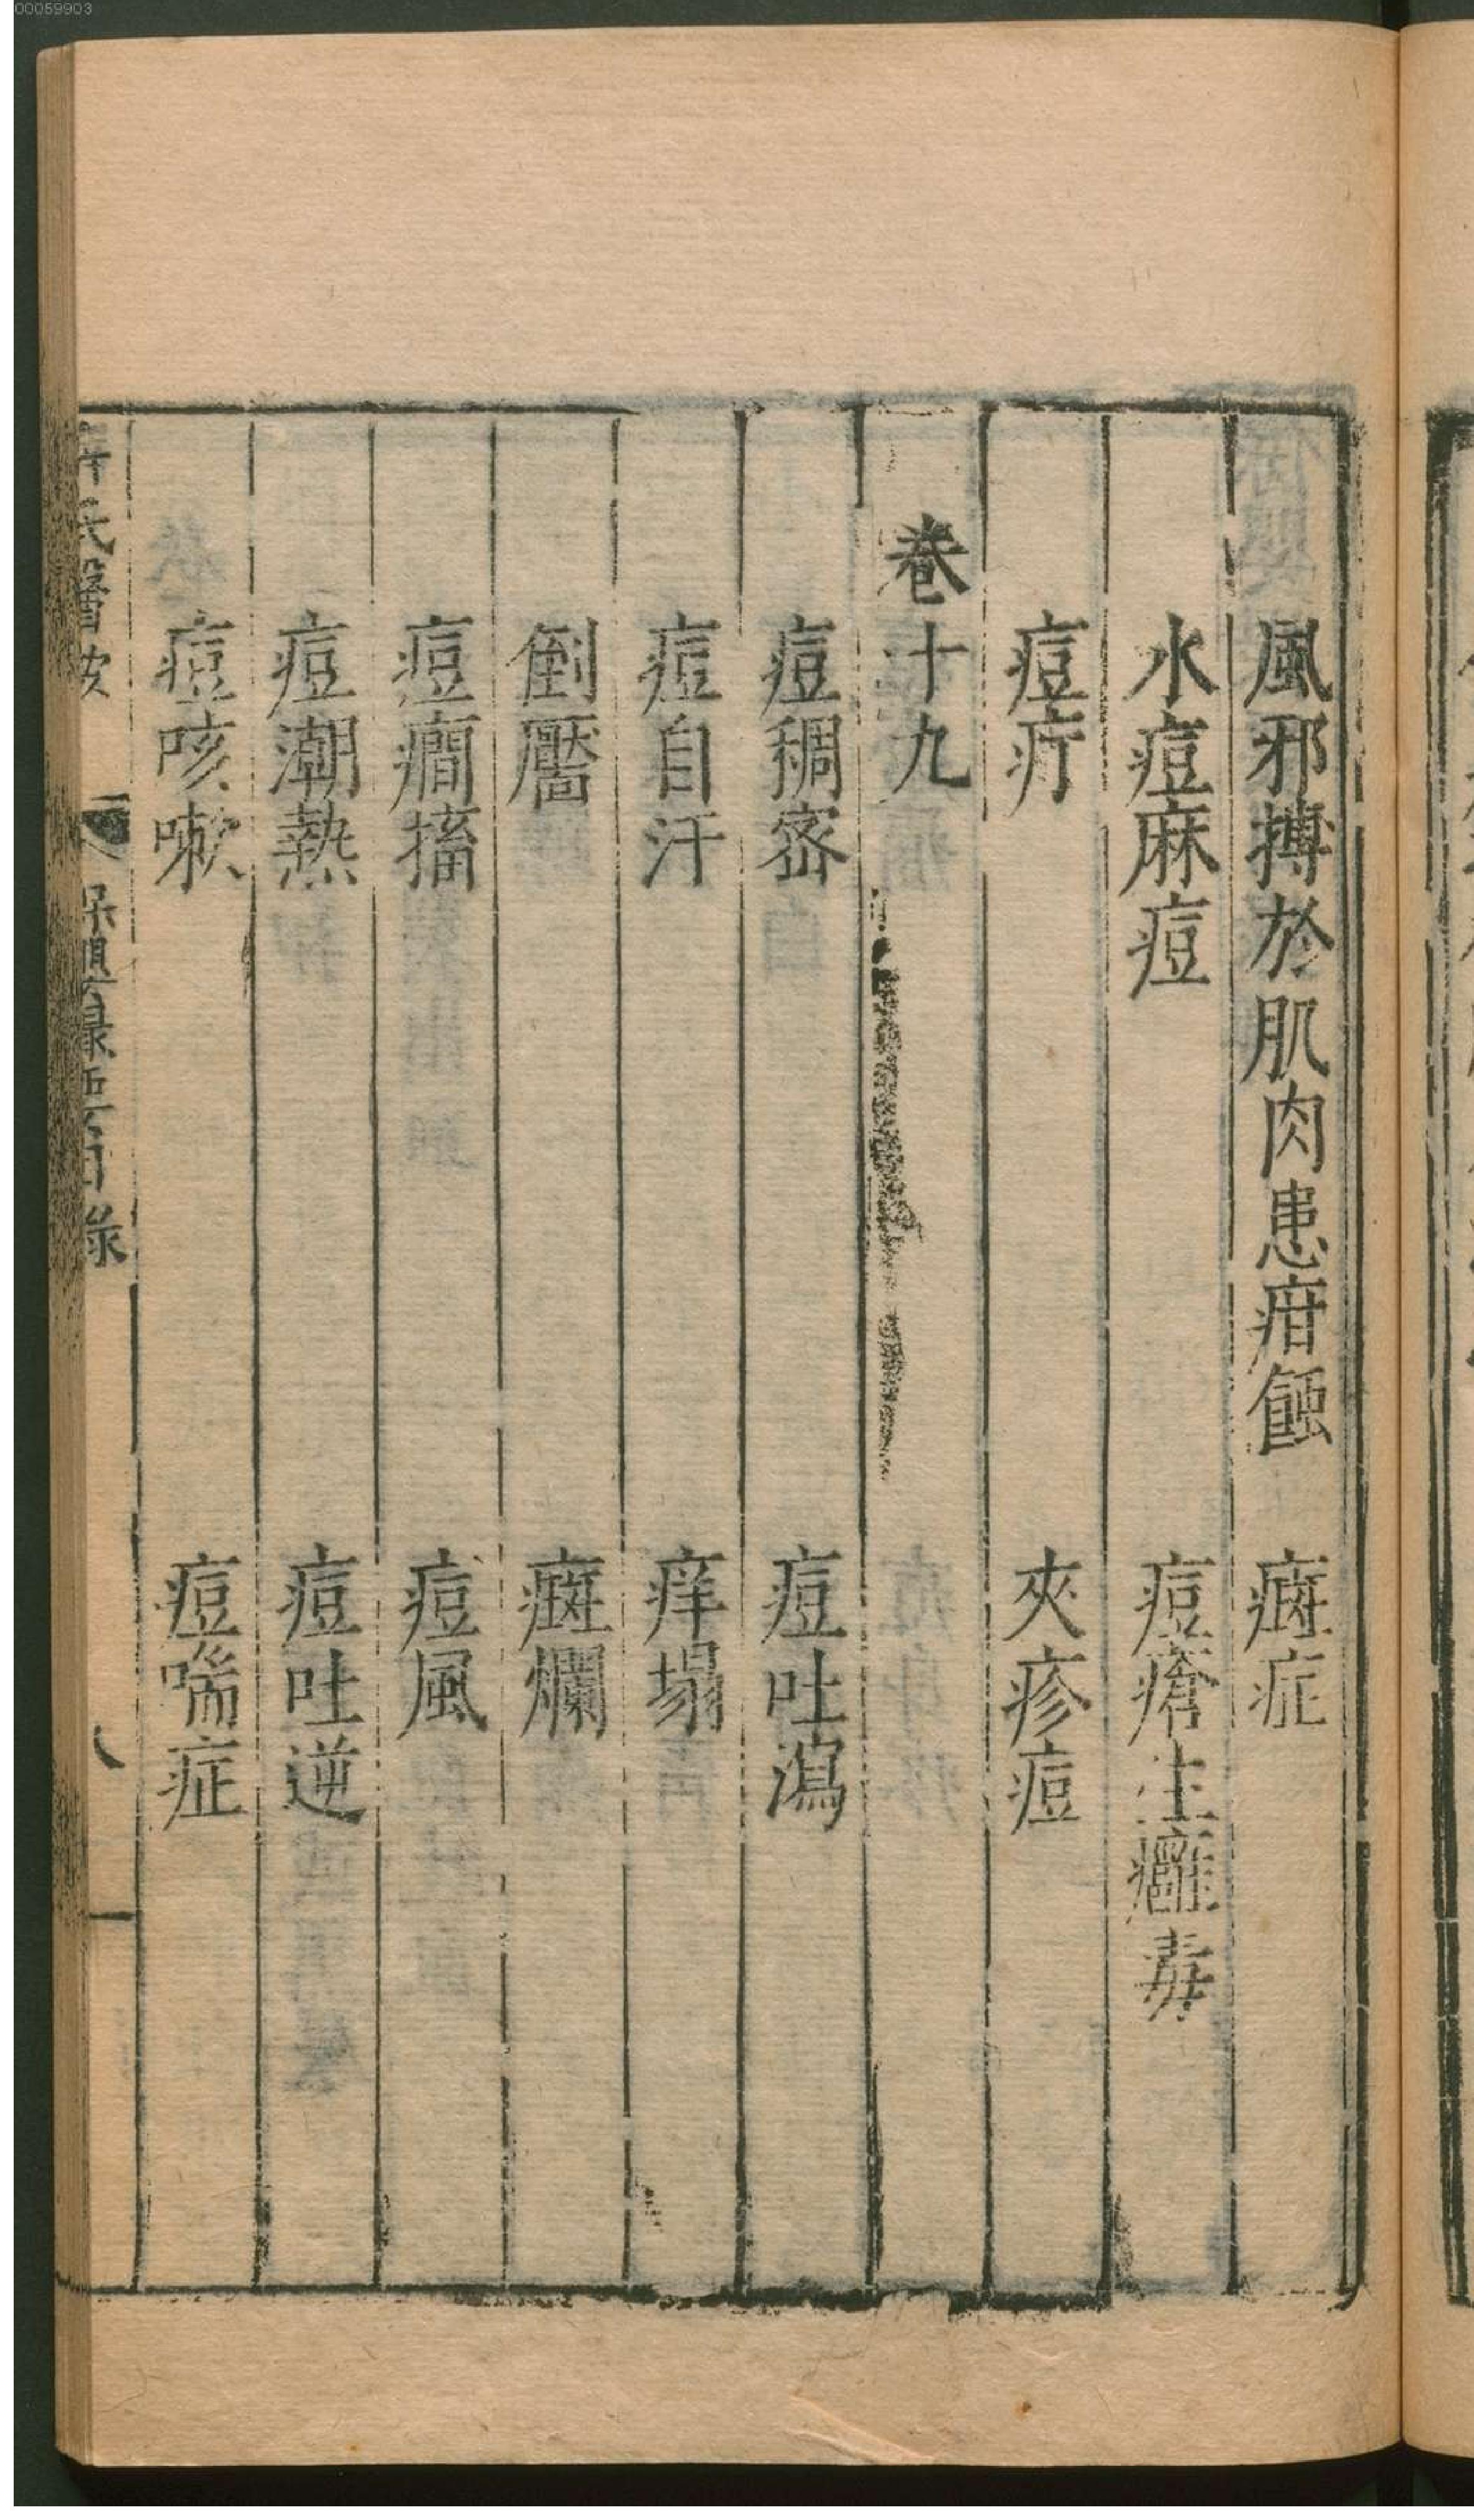 風邪搏於肌肉患疳蝕　癍症
水痘麻痘　痘瘡生癰毒
痘疔　夾疹痘
卷十九
痘稠宻　痘吐瀉
痘自汗　痒塌
倒靨　癍爛
痘癎搐　痘風
痘潮熱　痘吐逆
痘咳嗽　痘喘症
薛氏醫按　保嬰撮要目錄　八
00059903